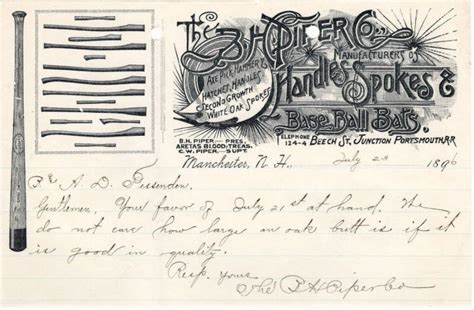 THE B.H. PIPER CO.,
MANUFACTURERS OF
AXE, PICK, HAMMER &
HATCHET HANDLES
SECOND GROWTH
WHITE OAK SPOKES
Handles, Spokes &
Base Ball Bats,
B.H. PIPER — PRES.
ARETAS BLOOD — TREAS.
C.W. PIPER — SUPT.
TELEPHONE
124-4
BEECH ST., JUNCTION PORTSMOUTH R.R.
Manchester, N.H., July 23 1896
B & A. D. Fessenden.
Gentlemen, Your favor of July 21st at hand. The
do not care how large an oak butt is if it
is good in quality.
Resp. yours
The B H Piper Co